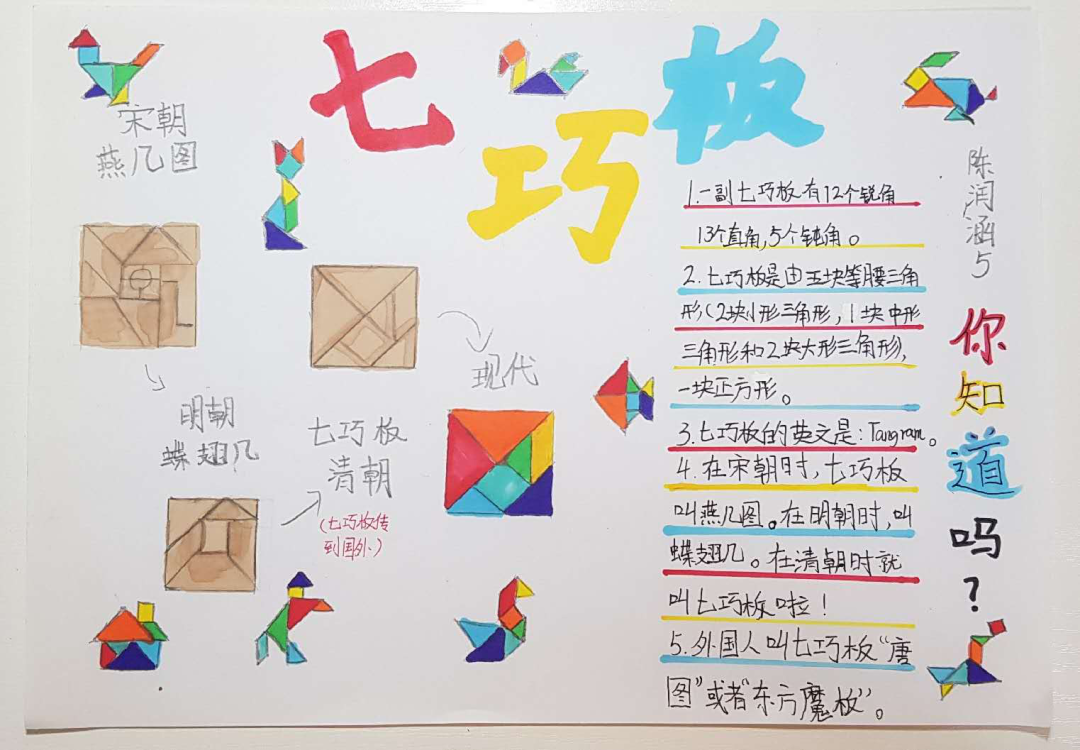 七
巧
板
宋朝
燕几图
明朝
蝶翅几
七巧板
清朝
(七巧板传
到国外)
现代
1.一副七巧板有12个锐角
13个直角,5个钝角。
2.七巧板是由五块等腰三角
形(2块小形三角形,1块中形
三角形和2块大形三角形),
一块正方形。
3.七巧板的英文是:Tangram。
4.在宋朝时,七巧板
叫燕几图。在明朝时,叫
蝶翅几。在清朝时就
叫七巧板啦!
5.外国人叫七巧板“唐
图”或者“东方魔板”。
陈润涵5
你知道吗?